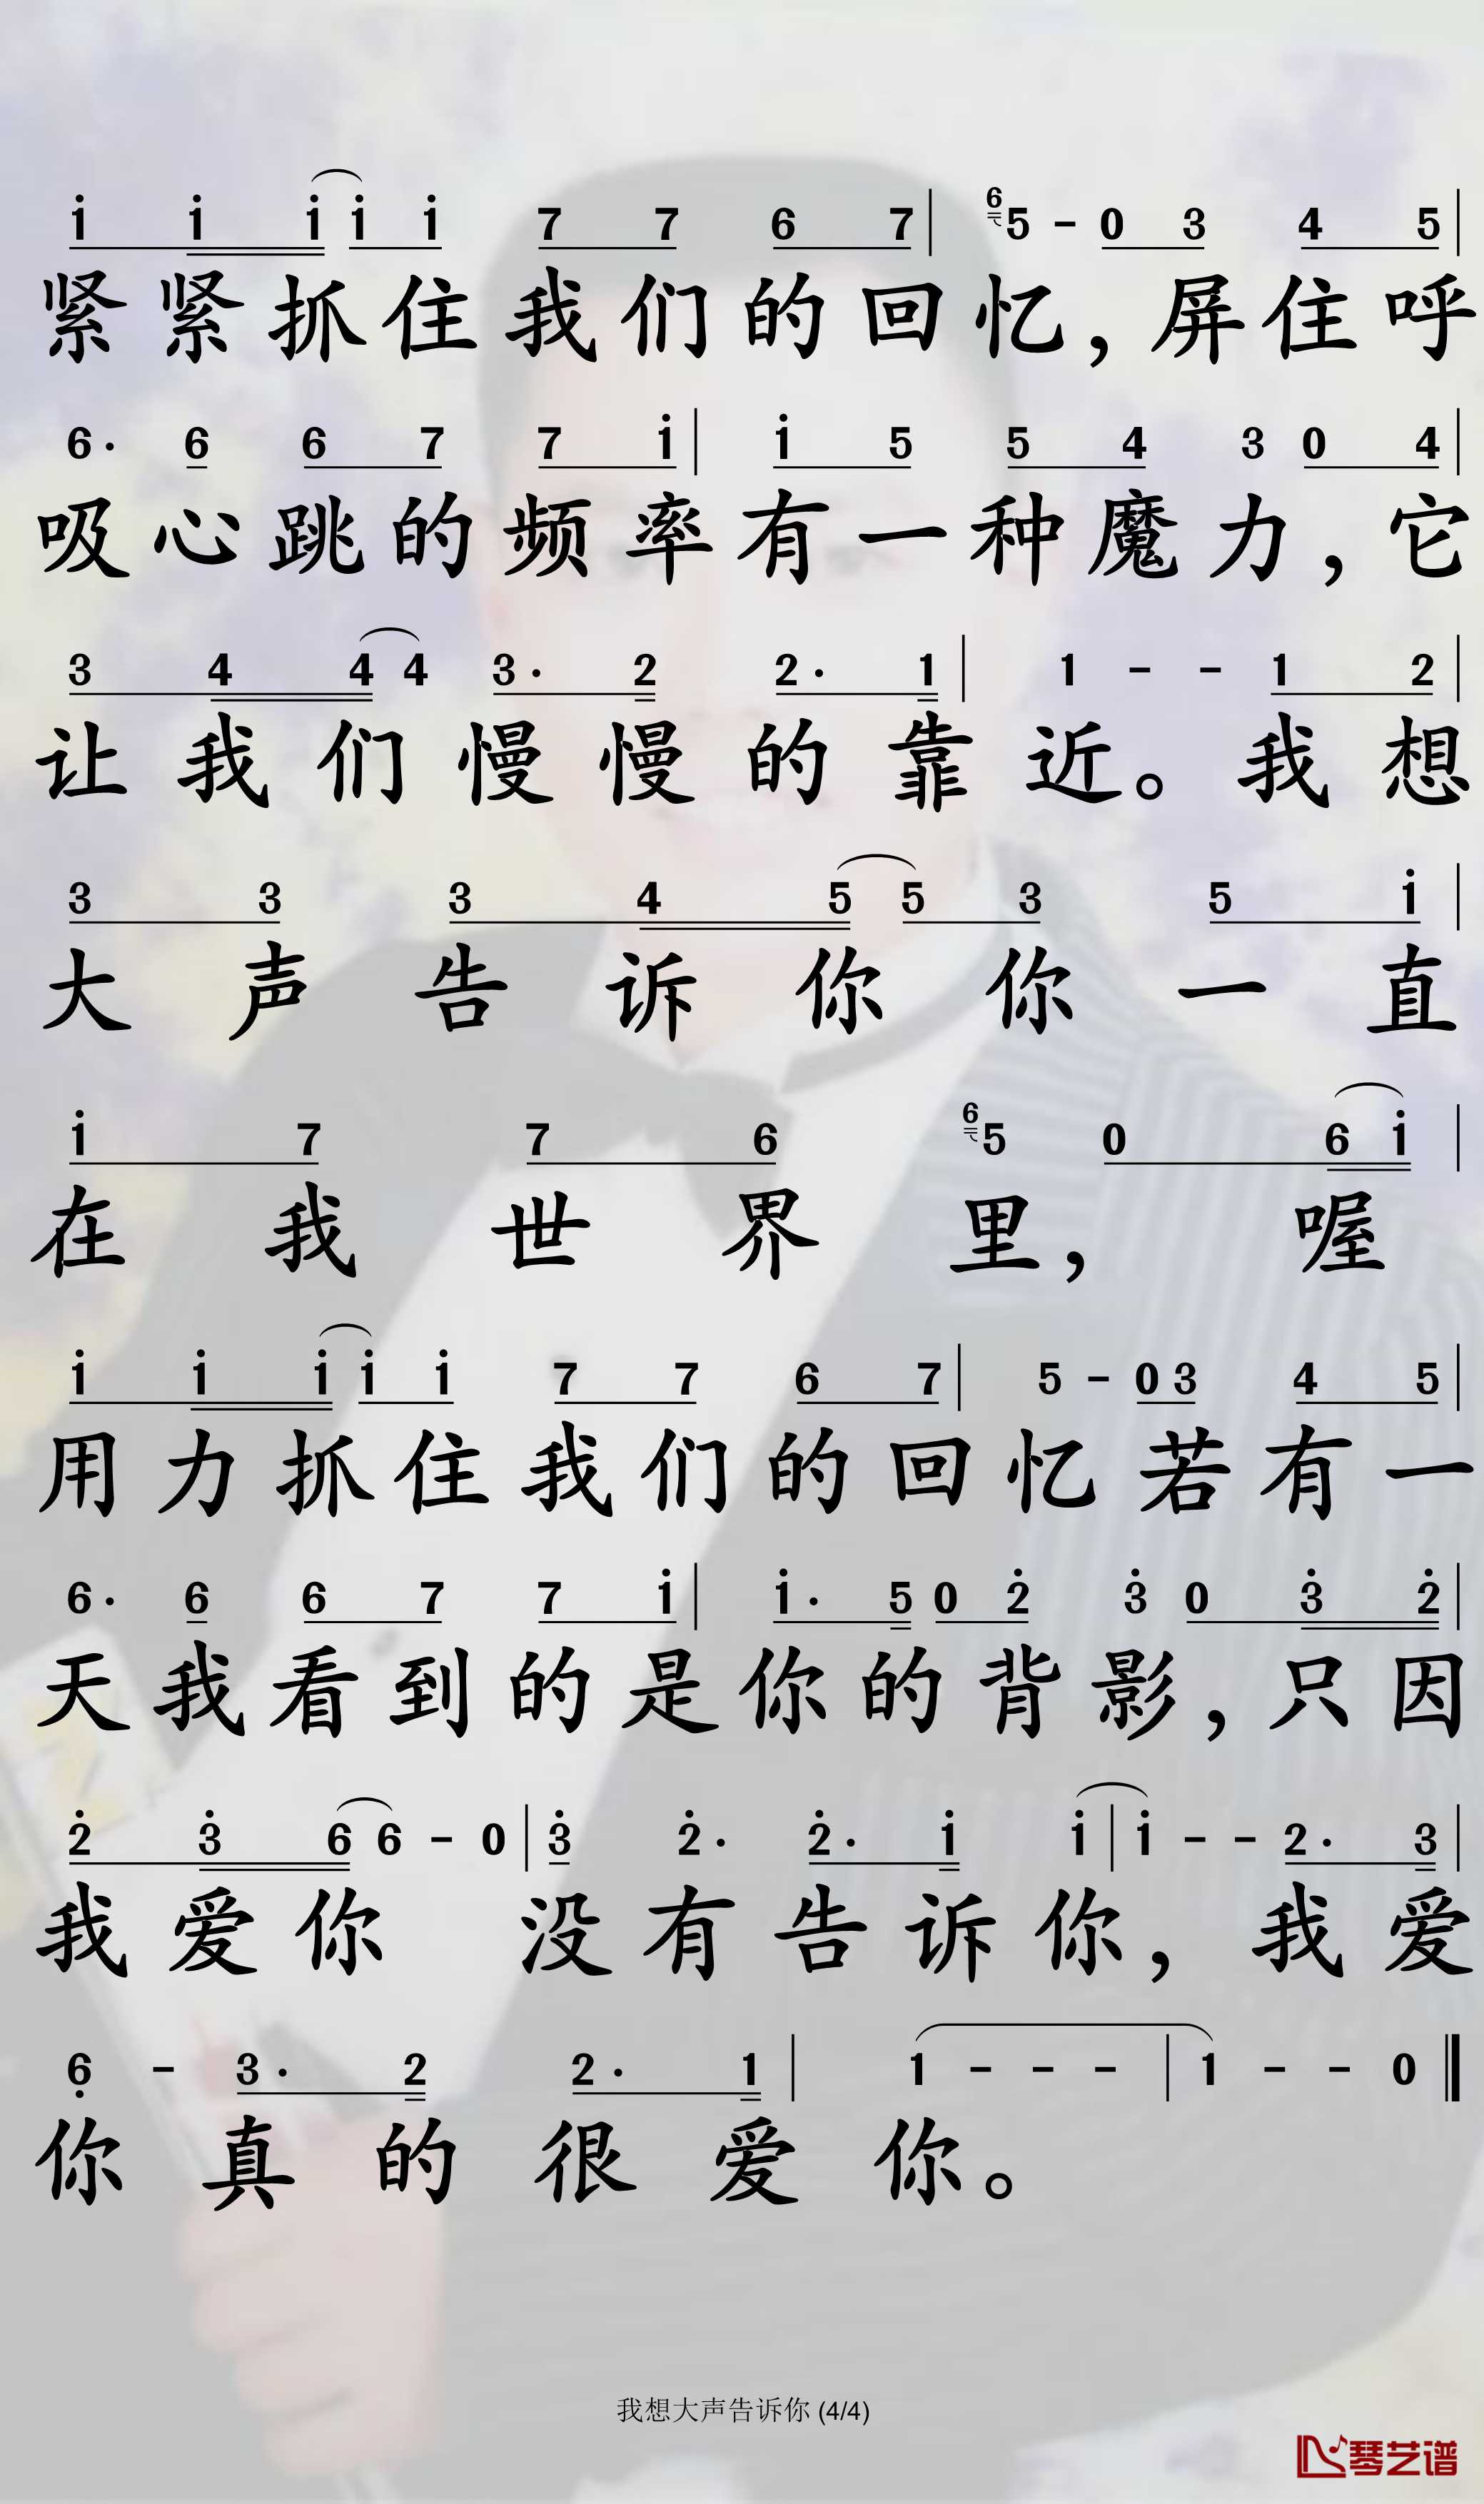 i i i i i 7 7 6 7 | 6 5 - 0 3 4 5 |
紧紧抓住我们的回忆，屏住呼
6· 6 6 7 7 i | i 5 5 4 3 0 4 |
吸心跳的频率有一种魔力，它
3 4 4 4 3· 2 2· 1 | 1 - - 1 2 |
让我们慢慢的靠近。我想
3 3 3 4 5 5 3 5 i |
大声告诉你你一直
i 7 7 6 6 5 0 6 i |
在我世界里，喔
i i i i i 7 7 6 7 | 5 - 0 3 4 5 |
用力抓住我们的回忆若有一
6· 6 6 7 7 i | i· 5 0 2 3 0 3 2 |
天我看到的是你的背影，只因
2 3 6 6 - 0 | 3 2· 2· i i | i - - 2· 3 |
我爱你 没有告诉你，我爱
6 - 3· 2 2· 1 | 1 - - - | 1 - - 0 ‖
你真的很爱你。
我想大声告诉你 (4/4)
琴艺谱